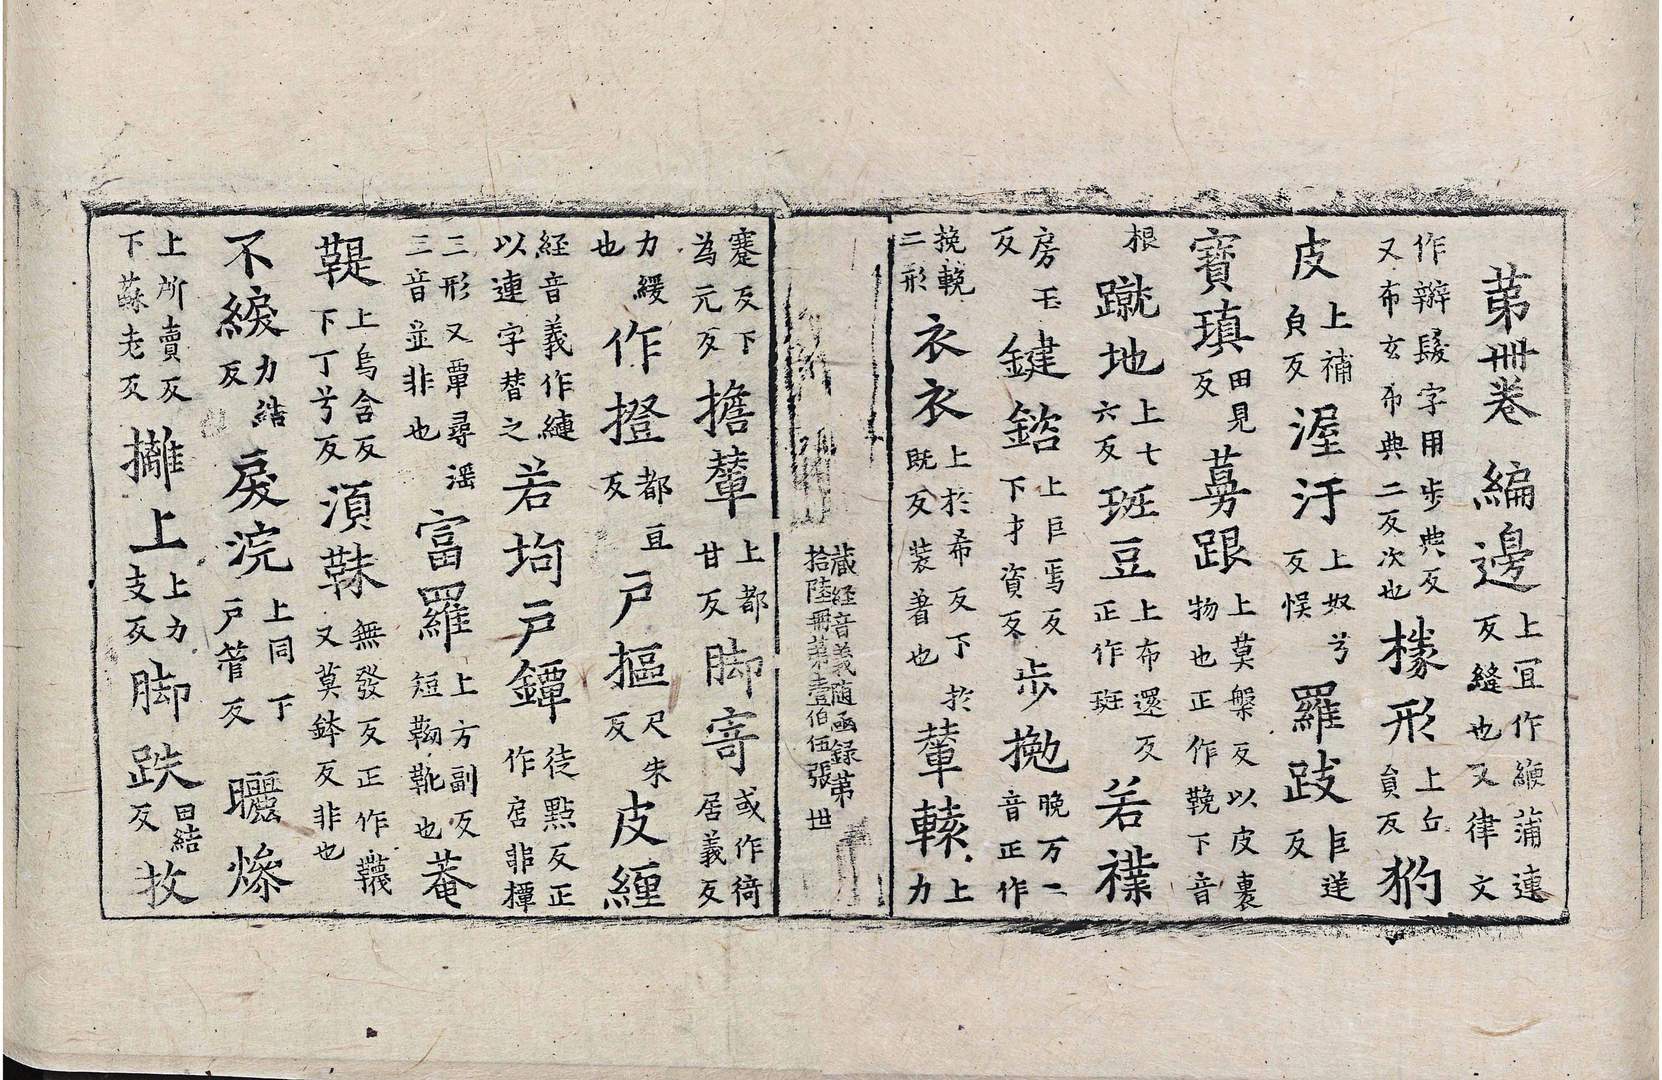 苐卌卷 編邊 上冝作緶蒲連反縫也又律文
作辮髲字用步典反又布玄布典二反次也 椽形 上丘貟反 犳
皮 上補皃反 渥汙 上奴兮反悞 羅跂 巨逆反
寶瑱 田見反 蔓跟 上莫槃反以皮裹物也正作鞔下音
根 蹴地 上七六反 斑豆 上布還反正作斑 若襍
房玉反 鍵鎔 上巨焉反下才資反 步拋 晚万二音正作
挽輓二形 衣衣 上於希反下於既反裝著也 輦轅 上力
蹇反下為元反 擔輦 上都甘反 脚寄 或作徛居義反
力緩也 作撜 都亘反 戸摳 尺朱反 皮緾
経音義作縺以連字替之 若抅戸鐔 徒點反正作㢑非橝
三形又覃尋滛三音並非也 富羅 上方副反短靿靴也 菴
鞮 上烏含反下丁兮反 湏靺 無發反正作韈又莫鉢反非也
不綟 力結反 戾浣 上同下戸管反 曬㷮
上所賣反下蘇老反 攡上 上力支反 脚跌 田結反 扙
藏経音義随函録苐
拾陸冊苐壹伯伍張 世